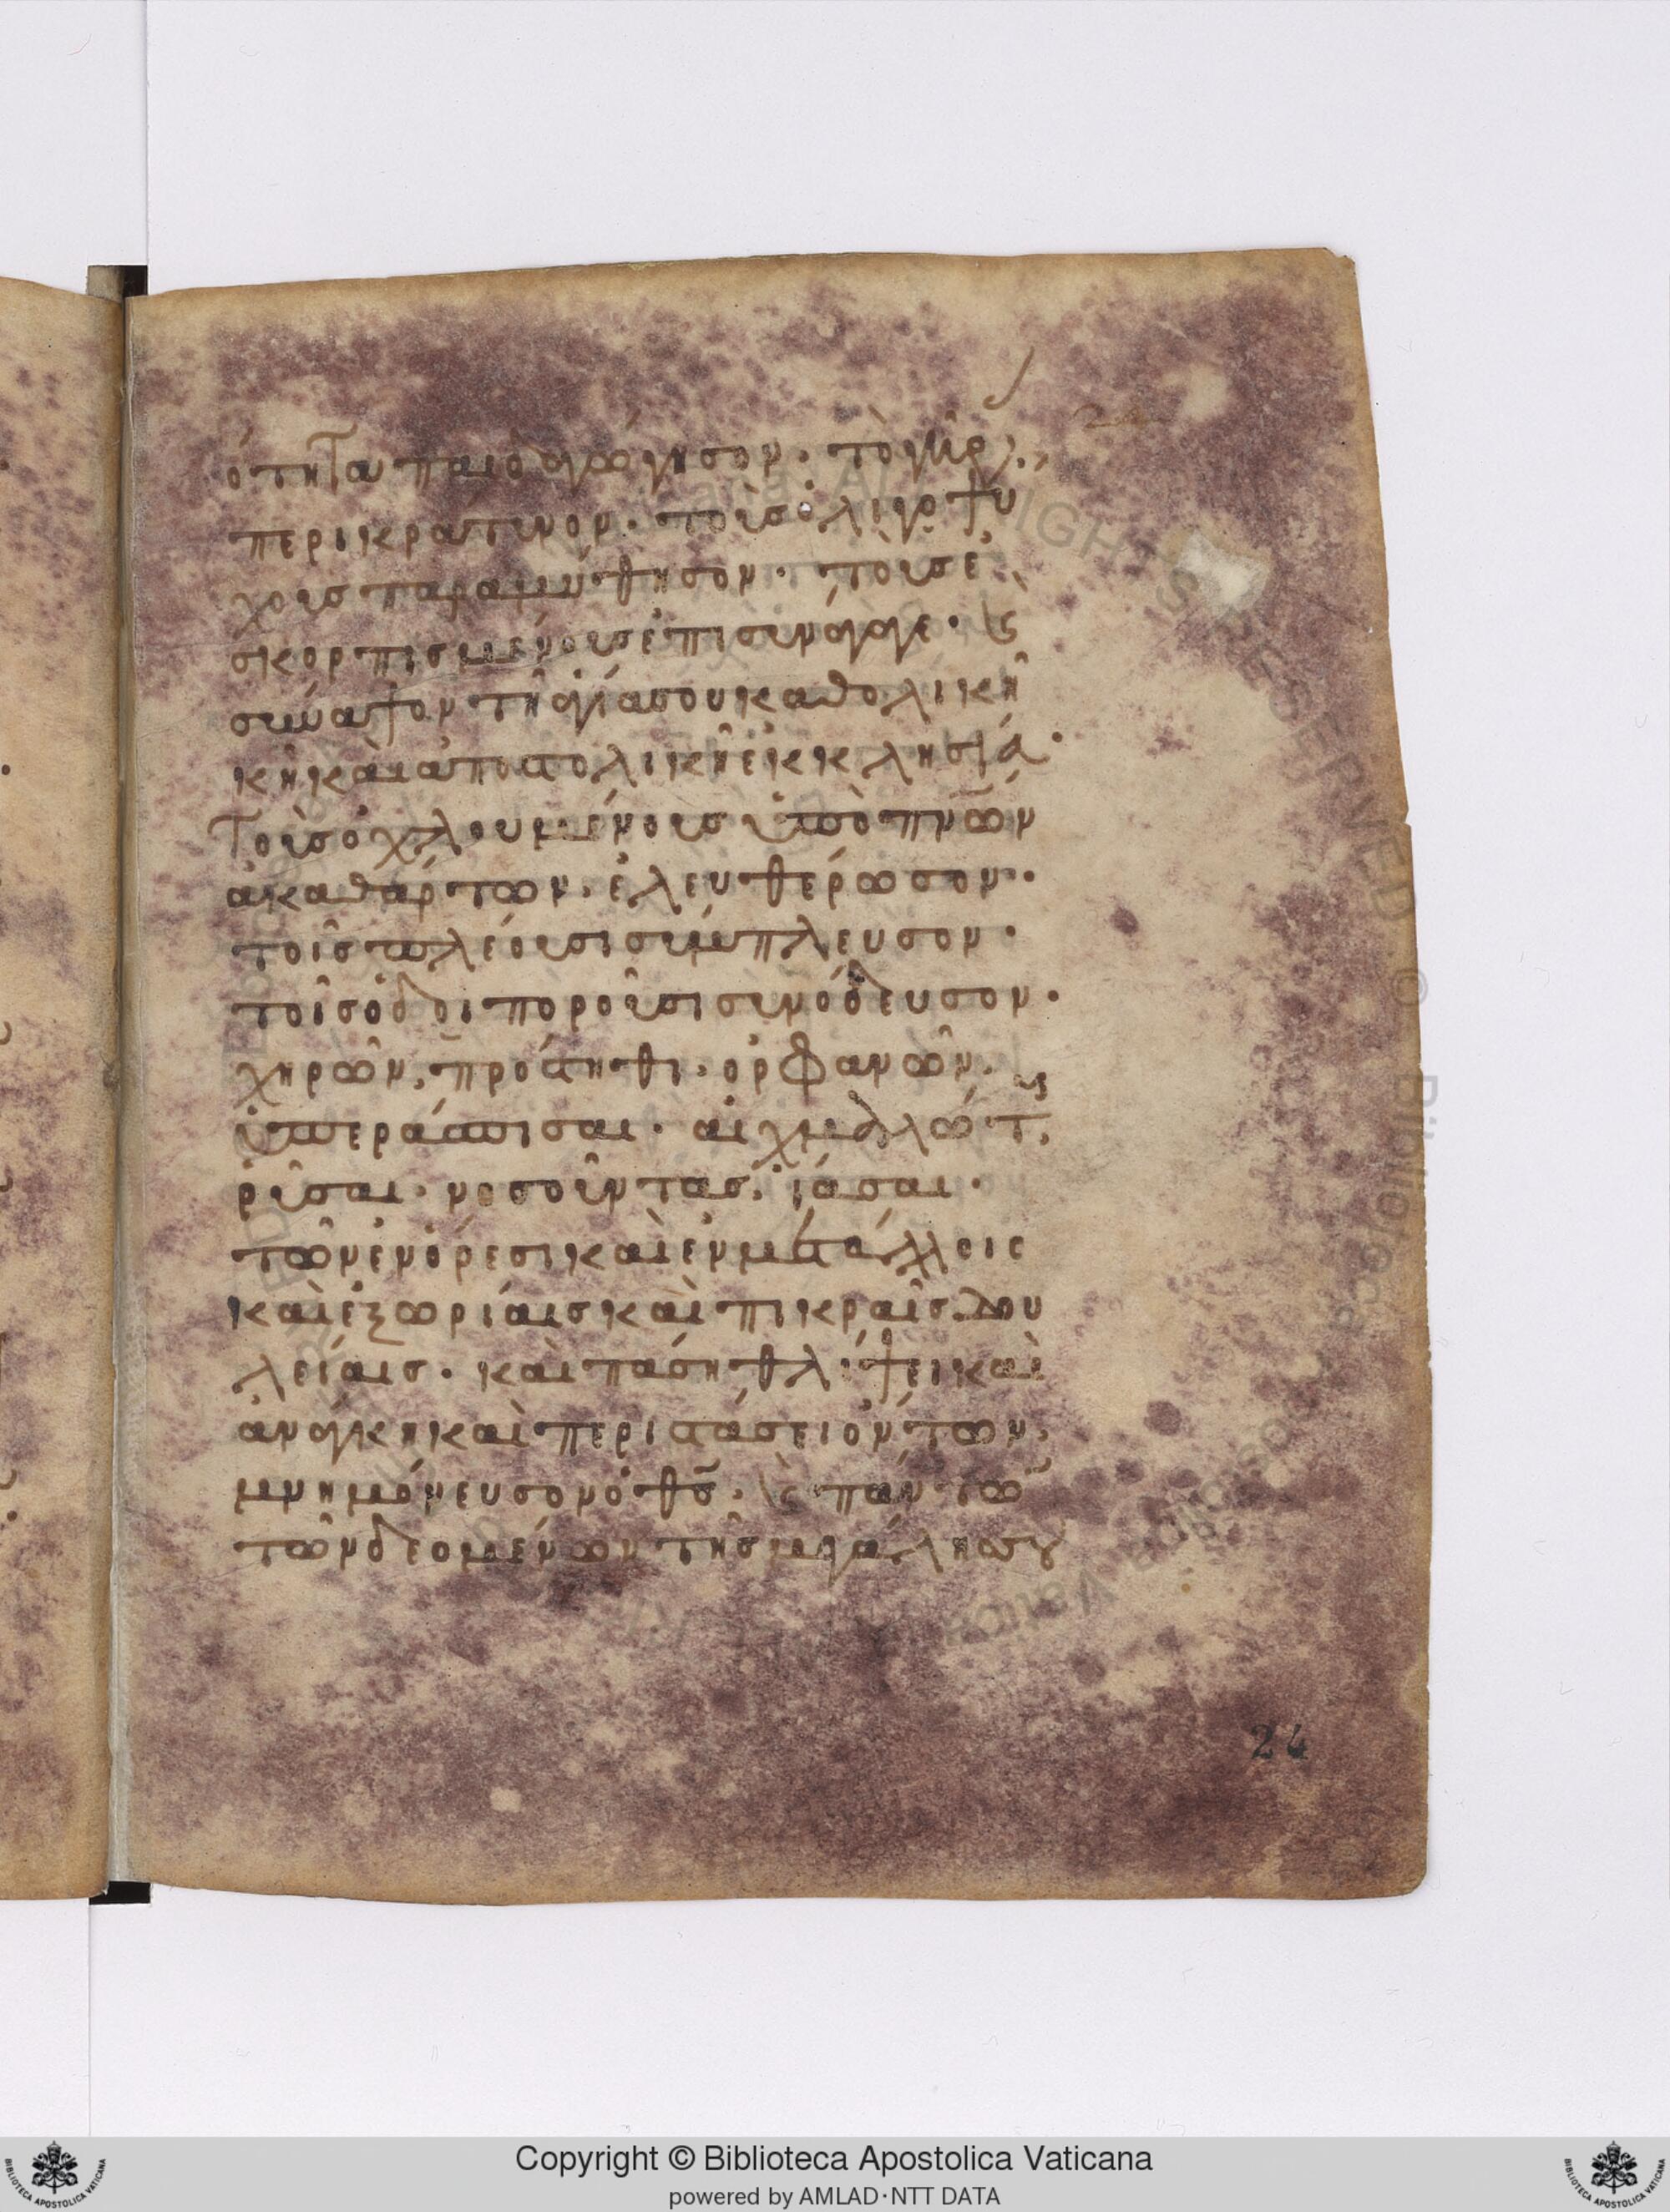 ότητα παιδαγώγησον· τὸ γῆρ
περικράτυνον· τοὺσ ὀλιγοψύ
χουσ παραμύθησον· τοὺσ ἐ
σκορπισμένουσ ἐπισυνάγαγε· ϗ
σύναψον τῆ ἁγία σου καθολικῆ
κῆ καὶ ἀποστολικῆ ἐκκλησία·
Τοὺσ ὀχλουμένουσ ὑπὸ πν̅ων
ἀκαθάρτων, ἐλευθέρωσον·
τοῖσ πλέουσι σύμπλευσον·
τοῖσ ὁδοιποροῦσι συνόδευσον·
χηρῶν, πρόστηθι· ὀρφανῶν,
ὑπεράσπισαι· αἰχμαλώτους
ρῦσαι· νοσοῦντασ, ἴάσαι·
τῶν ἐν ὄρεσι καὶ ἐν μετάλλοις
καὶ ἐξωρίαισ καὶ πικραῖσ δου
λείαισ· καὶ πάση θλίψει καὶ
ἀνάγκη καὶ περιστάσει ὄντων,
μνημόνευσον ὁ θσ̅· ϗ πάντων
τῶν δεομένων τῆσ μεγάλησ σου
24
Copyright © Biblioteca Apostolica Vaticana
powered by AMLAD·NTT DATA